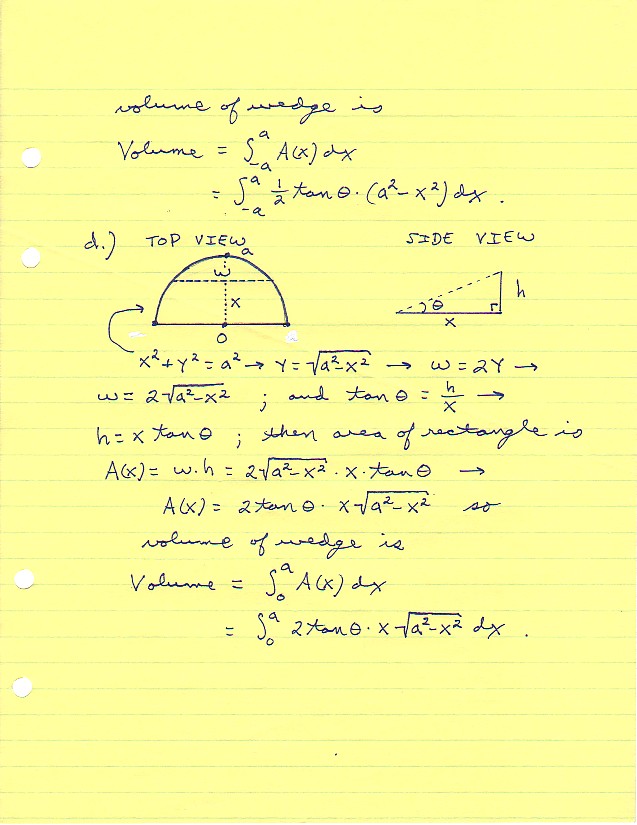 volume of wedge is
Volume = ∫_{-a}^{a} A(x) dx
= ∫_{-a}^{a} 1/2 tan θ · (a² - x²) dx .
d.) TOP VIEW SIDE VIEW
a
w
x
0
h
θ
x
x² + y² = a² → y = √(a²-x²) → w = 2y →
w = 2√(a²-x²) ; and tan θ = h/x →
h = x tan θ ; then area of rectangle is
A(x) = w·h = 2√(a²-x²) · x · tan θ →
A(x) = 2 tan θ · x √(a²-x²) so
volume of wedge is
Volume = ∫_{0}^{a} A(x) dx
= ∫_{0}^{a} 2 tan θ · x √(a²-x²) dx .